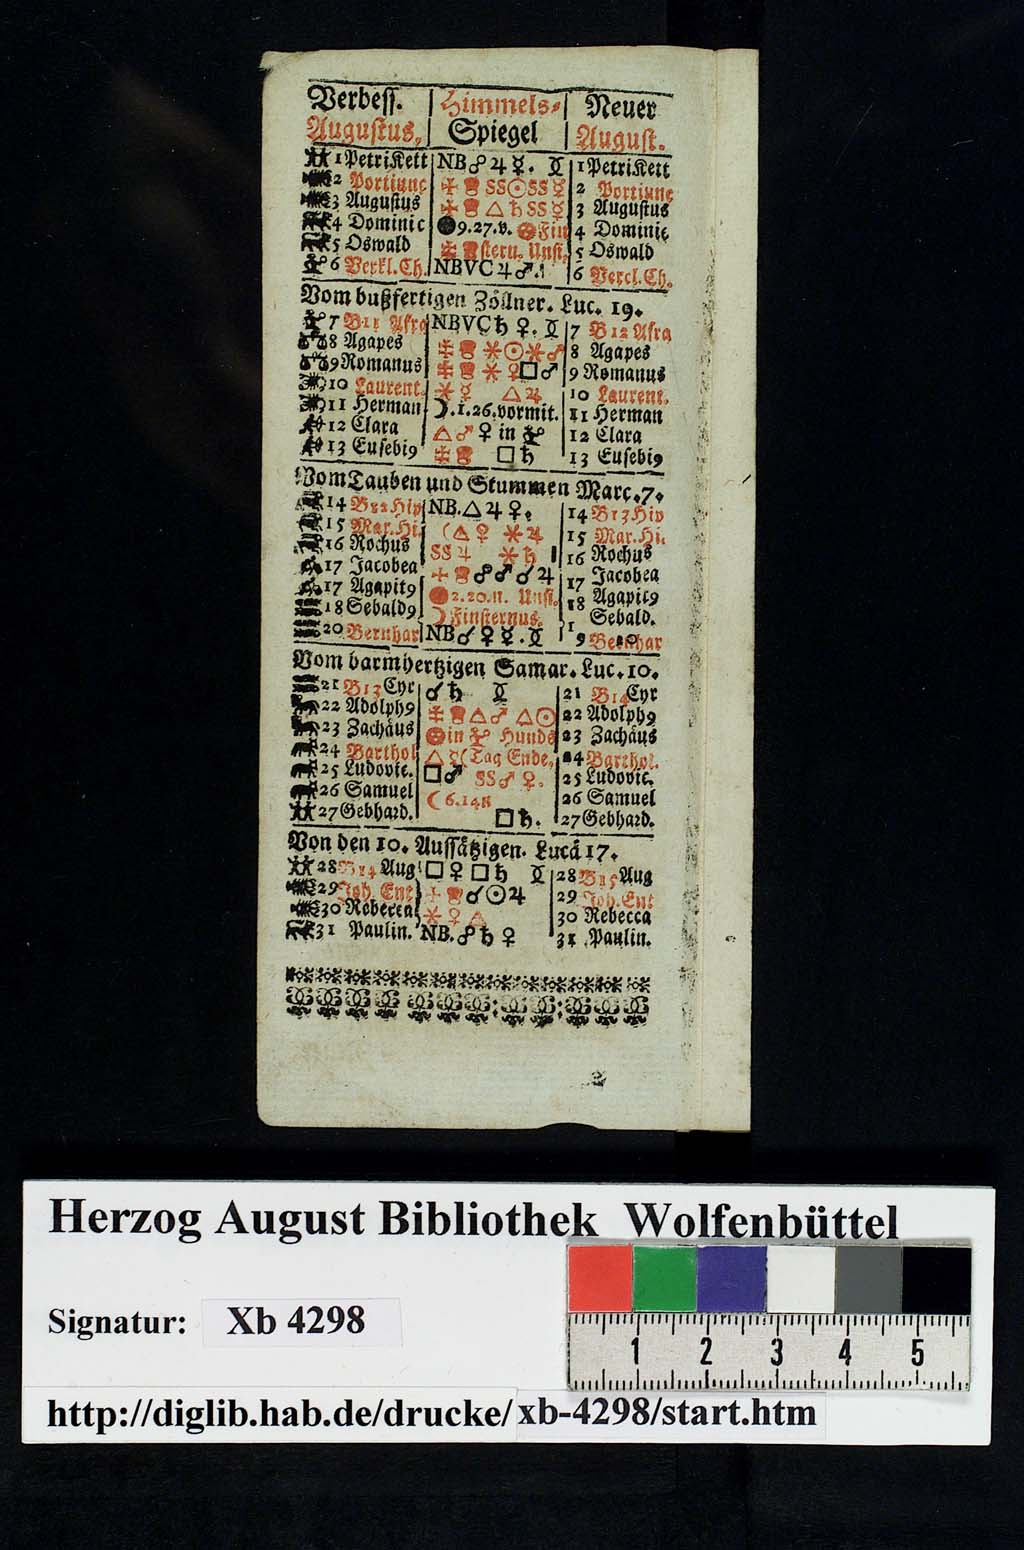 Verbess. | Himmels- | Neuer
Augustus, | Spiegel | August.
1 Petri Kett | NB ☍ ♃ ☿. | 1 Petri Kett
2 Portiunc | SS ☉ SS ☿ | 2 Portiunc
3 Augustus | △ ♄ SS ☿ | 3 Augustus
4 Dominic | 9.27.v. Fin | 4 Dominic
5 Oswald | stern. Unsi. | 5 Oswald
6 Verkl. Ch. | NBVC ♃ ♂. | 6 Vercl. Ch.
Vom bußfertigen Zöllner. Luc. 19.
7 B11 Afra | NBVC ♄ ♀. | 7 B12 Afra
8 Agapes | ⚹ ☉ ⚹ ♂ | 8 Agapes
9 Romanus | ⚹ ♀ □ ♂ | 9 Romanus
10 Laurent. | ⚹ ☿ △ ♃ | 10 Laurent.
11 Herman | ☽.1.26.vormit. | 11 Herman
12 Clara | △ ♂ ♀ in | 12 Clara
13 Eusebi9 | □ ♄ | 13 Eusebi9
Vom Tauben und Stummen Marc. 7.
14 B12 Hip | NB. △ ♃ ♀. | 14 B13 Hip
15 Mar. Hi. | ( △ ♀ ⚹ ♃ | 15 Mar. Hi.
16 Rochus | SS ♃ ⚹ ♄ | 16 Rochus
17 Jacobea | ☍ ♂ ☌ ♃ | 17 Jacobea
17 Agapit9 | 2.20.n. Unsi. | 18 Agapit9
18 Sebald9 | ☽ Finsternus. | 1 Sebald.
20 Bernhar | NB ☌ ♀ ☿. | 9 Bernhar
Vom barmhertzigen Samar. Luc. 10.
21 B13 Cyr | ☌ ♄ | 21 B14 Cyr
22 Adolph9 | △ ♂ △ ☉ | 22 Adolph9
23 Zachäus | in Hunds | 23 Zachäus
24 Barthol | △ ☿ ( Tag Ende. | 24 Barthol.
25 Ludovic. | □ ♂ SS ♂ ♀. | 25 Ludovic.
26 Samuel | ☾ 6.14n | 26 Samuel
27 Gebhard. | □ ♄. | 27 Gebhard.
Von den 10. Aussätzigen. Lucä 17.
28 B14 Aug | □ ♀ □ ♄ | 28 B15 Aug
29 Joh. Ent | ☌ ☉ ♃ | 29 Joh. Ent
30 Rebecca | ⚹ ♀ △ | 30 Rebecca
31 Paulin. | NB. ☍ ♄ ♀ | 31 Paulin.
Herzog August Bibliothek Wolfenbüttel
Signatur: Xb 4298
1 2 3 4 5
http://diglib.hab.de/drucke/xb-4298/start.htm